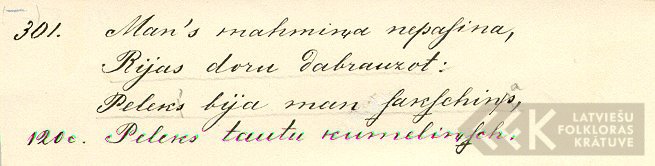 301. Man's mahmiņa nepasina,
Rijas doru dabrauzot:
Peleks bija man sakschiņ,
120c. Peleks tautu kumelinsch.
LATVIEŠU
FOLKLORAS
KRĀTUVE